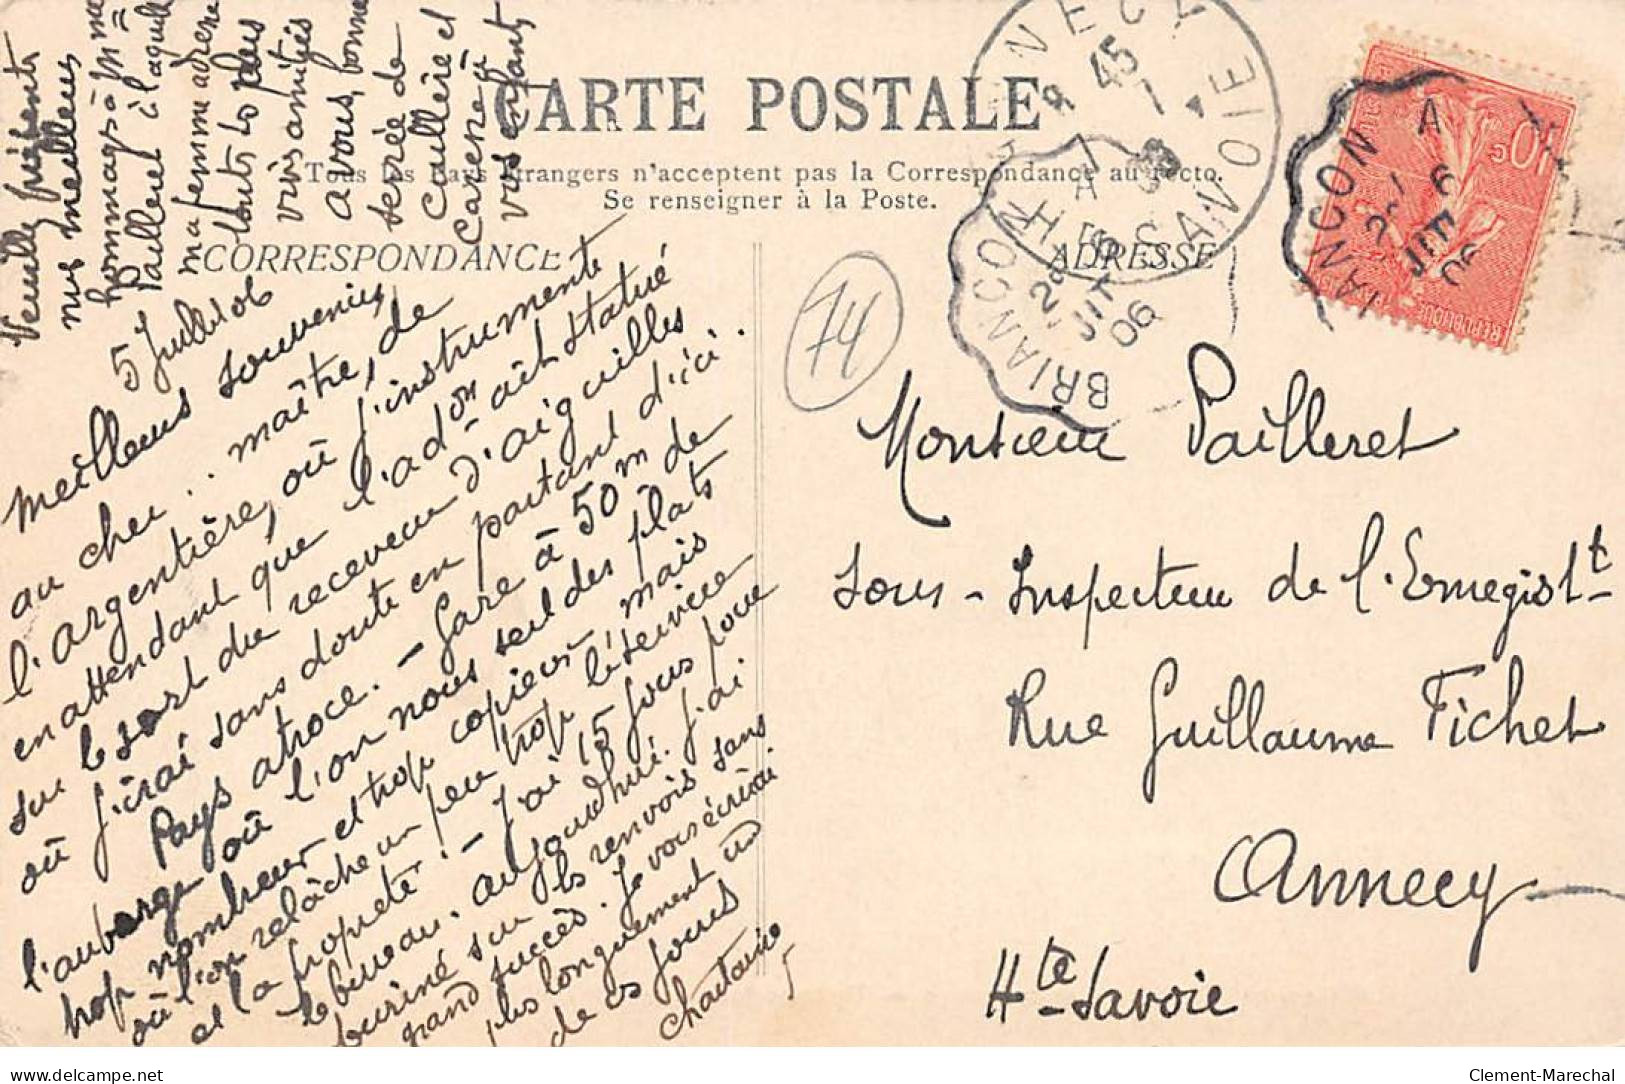 CARTE POSTALE
Tous les Pays étrangers n'acceptent pas la Correspondance au recto.
Se renseigner à la Poste.
CORRESPONDANCE
ADRESSE
5 Juillet 06
Meilleurs souvenirs
au cher.. maître, de
l'argentière, où j'instrumente
en attendant que l'ad.on ait statué
sur le sort du receveur d'aiguilles
où j'irai sans doute en partant d'ici.
Pays atroce. - Gare à 50 m de
l'auberge où l'on nous sert des plats
trop nombreux et trop copieux mais
où l'on relâche un peu trop le service
et la propreté! - J'ai 15 jours pour
le bureau. aujourdhui j'ai
buriné sur les renvois sans
grand succès. Je vous écrirai
plus longuement un
de ces jours
Veuillez présenter
nos meilleurs
hommages à Mme
Pailleret à laquelle
ma femme adresse
toutes ses plus
vives amitiés
a vous, bonne
serrée de
Cuillère et
Caresse à
vos enfants
74
ANNECY
Hte SAVOIE
BRIANCON A
2e
JIT
06
BRIANCON A
6
JIT
06
REPUBLIQUE
10c
Monsieur Pailleret
Sous-Inspecteur de l'Enregist.t
Rue Guillaume Fichet
Annecy
Hte-Savoie
delcampe.net
Clement-Marechal